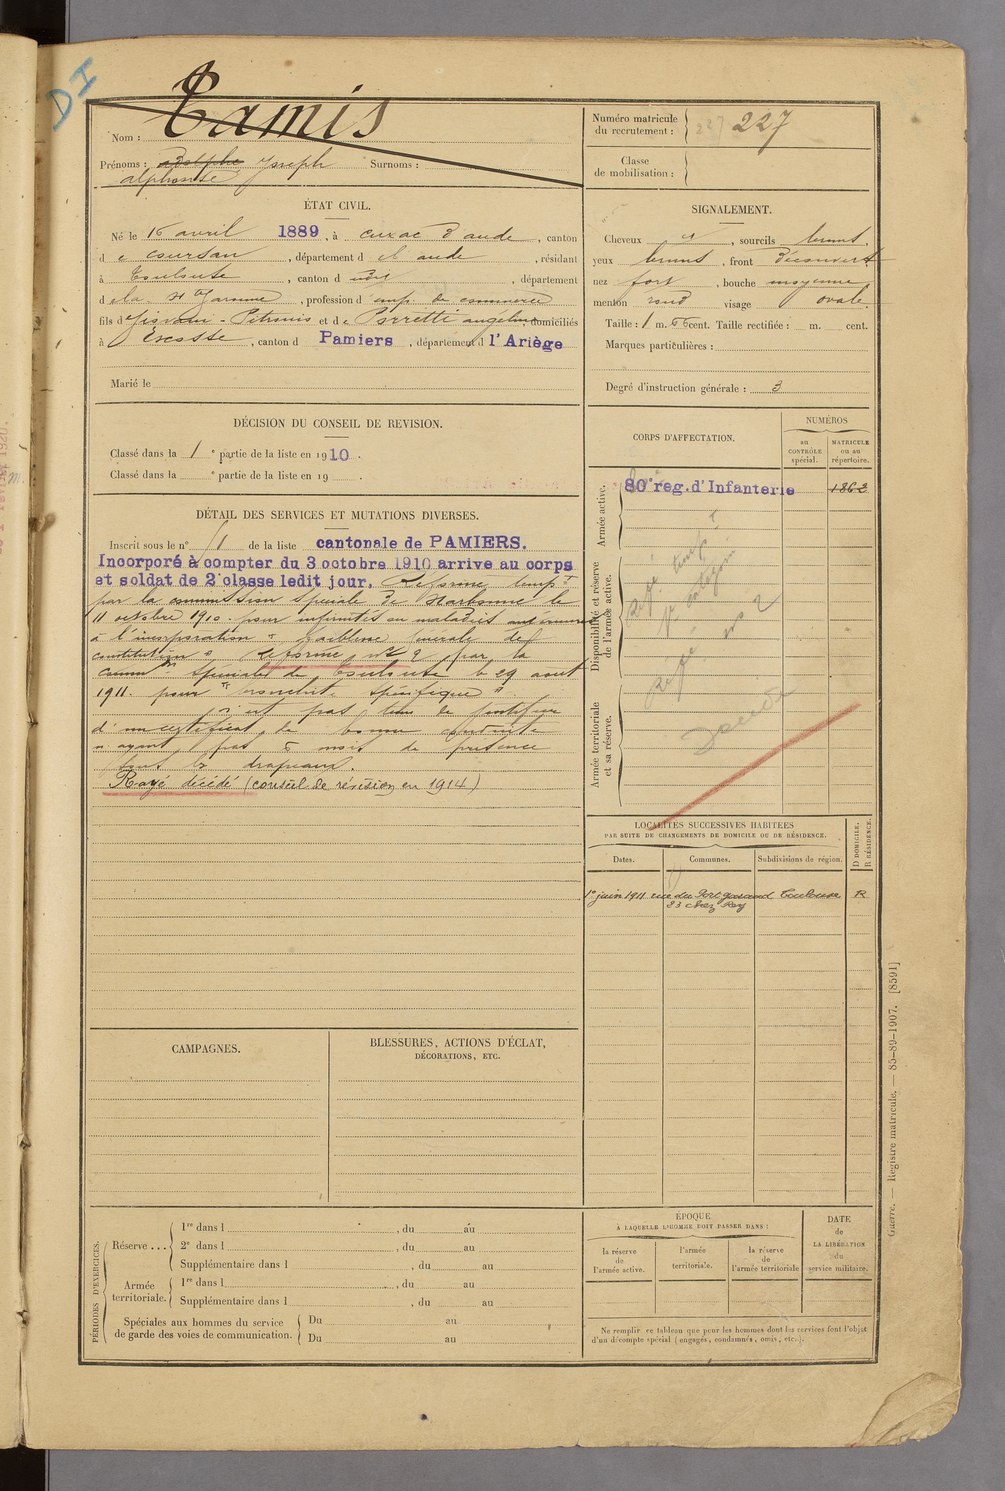 DI
Tamis
Nom :
Prénoms : Adolphe Joseph Surnoms :
alphonse
Numéro matricule
du recrutement : 227 227
Classe
de mobilisation :
ÉTAT CIVIL.
Né le 16 avril 1889, à cuxac d'aude, canton
de coursan, département d el aude, résidant
à Toulouse, canton d udit, département
d ela Hte Garonne, profession d' emp. de commerce
fils d Pétronis et de Porretti domiciliés
à Escosse, canton d Pamiers, département d l'Ariège
Marié le
SIGNALEMENT.
Cheveux , sourcils bruns.
yeux bruns, front découvert
nez fort, bouche moyenne
menton rond visage ovale.
Taille : 1 m. cent. Taille rectifiée : m. cent.
Marques particulières :
Degré d'instruction générale : 3
DÉCISION DU CONSEIL DE REVISION.
Classé dans la 1e partie de la liste en 1910.
Classé dans la e partie de la liste en 19 .
DÉTAIL DES SERVICES ET MUTATIONS DIVERSES.
Inscrit sous le n° 51 de la liste cantonale de PAMIERS.
Incorporé à compter du 3 octobre 1910 arrive au corps
et soldat de 2e classe ledit jour. Réformé tempre
par la commission spéciale de Narbonne le
11 octobre 1910. pour infirmités ou maladies antérieures
à l'incorporation " faiblesse générale de
constitution ", réformé n° 2 par la
common spéciale de Toulouse le 29 août
1911. pour " bronchite spécifique "
n'eut pas lieu de justifier
d'un certificat de bonne conduite
n'ayant pas 6 mois de présence
sous les drapeaux.
Rayé décédé (conseil de révision en 1914)
CORPS D'AFFECTATION.
NUMÉROS
au
CONTRÔLE
spécial.
MATRICULE
ou au
répertoire.
Armée active.
80e reg. d'Infanterie 1862
Disponibilité et réserve
de l'armée active.
Réfé temp
Réfé n° 2
Armée territoriale
et sa réserve.
Décédé
LOCALITÉS SUCCESSIVES HABITÉES
PAR SUITE DE CHANGEMENTS DE DOMICILE OU DE RÉSIDENCE.
Dates.
Communes.
Subdivisions de région.
D DOMICILE.
R RÉSIDENCE.
1er juin 1911 rue du Port garaud Toulouse R
23 chez Rey
CAMPAGNES.
BLESSURES, ACTIONS D'ÉCLAT,
DÉCORATIONS, ETC.
PÉRIODES D'EXERCICES.
Réserve ...
1re dans l , du au
2e dans l , du au
Supplémentaire dans l , du au
Armée
territoriale.
1re dans l , du au
Supplémentaire dans l , du au
Spéciales aux hommes du service
de garde des voies de communication.
Du au
Du au
ÉPOQUE
À LAQUELLE L'HOMME DOIT PASSER DANS :
la réserve
de
l'armée active.
l'armée
territoriale.
la réserve
de
l'armée territoriale
DATE
de
LA LIBÉRATION
du
service militaire.
Ne remplir ce tableau que pour les hommes dont les services font l'objet
d'un décompte spécial (engagés, condamnés, omis, etc.).
Guerre. — Registre matricule. — 85-89-1907. [8591]